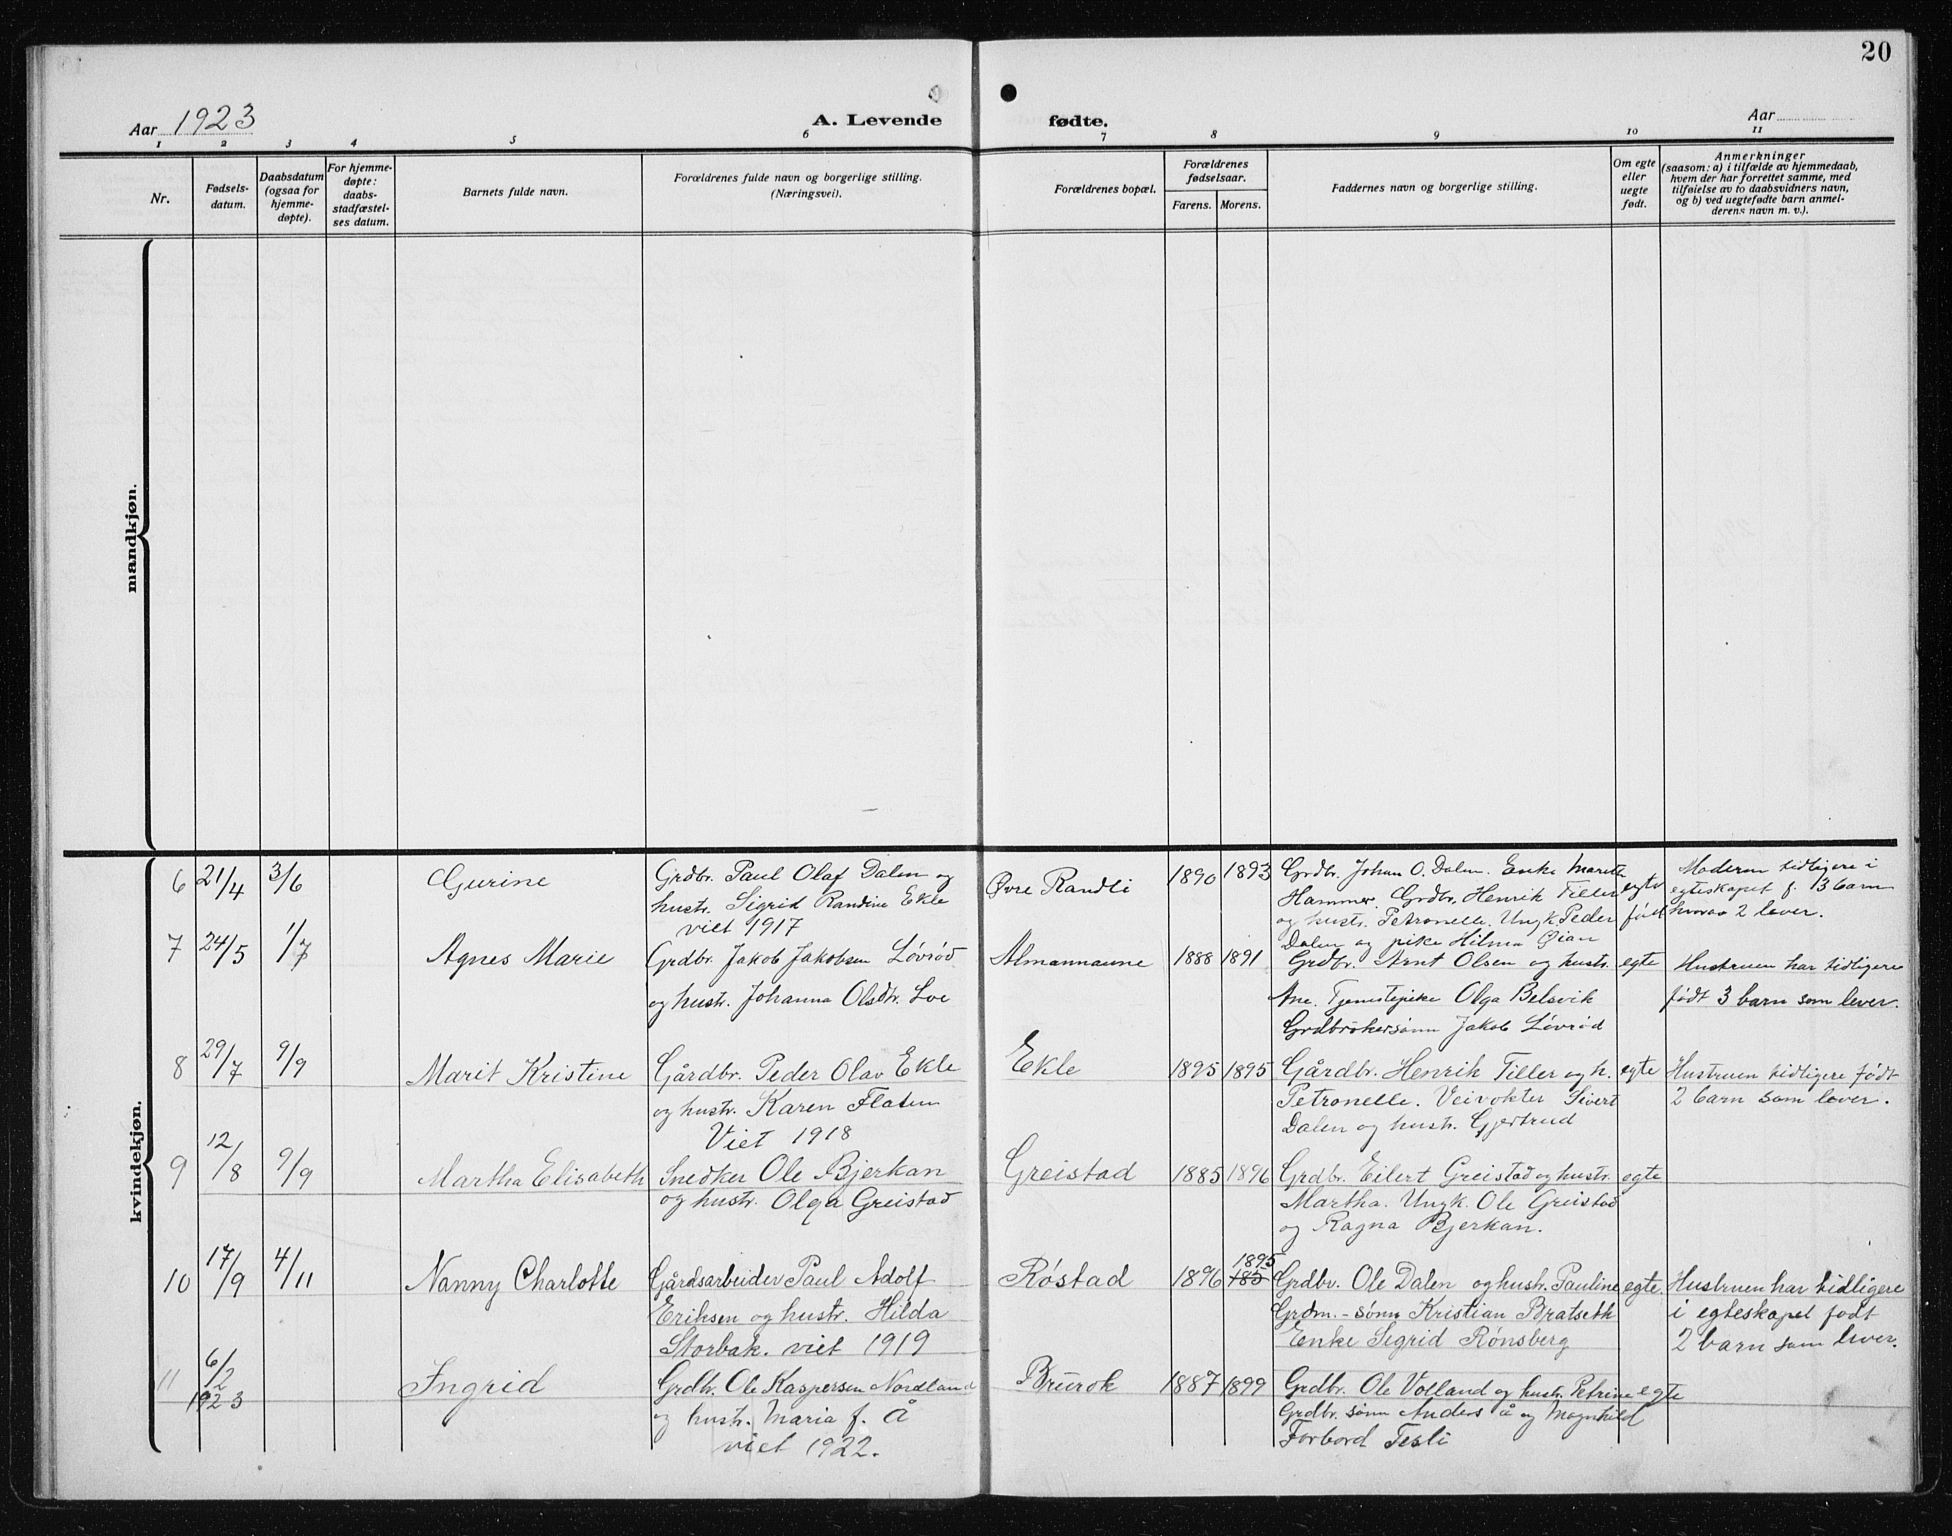 20
Aar 1923
A. Levende fødte.
Aar
1 2 3 4 5 6 7 8 9 10 11
Nr.
Fødsels-
datum.
Daabsdatum
(ogsaa for
hjemme-
døpte).
For hjemme-
døpte:
daabs-
stadfæstel-
ses datum.
Barnets fulde navn.
Forældrenes fulde navn og borgerlige stilling.
(Næringsvei).
Forældrenes bopæl.
Forældrenes
fødselsaar.
Farens. Morens.
Faddernes navn og borgerlige stilling.
Om egte
eller
uegte
født.
Anmerkninger
(saasom: a) i tilfælde av hjemmedaab,
hvem der har forrettet samme, med
tilføielse av to daabsvidners navn,
og b) ved uegtefødte barn anmel-
derens navn m. v.).
mandkjøn.
kvindekjøn.
6 21/4 3/6 Gurine
Grdbr. Paul Olaf Dalen og
hustr. Sigrid Randine Ekle
viet 1917
Øvre Randli 1890 1893
Grdbr. Johan O. Dalen. Enke Marith
Hammer. Grdbr. Henrik Tiller
og hustr. Petronelle. Ungk. Peder
Dalen og pike Hilma Øian
egte
født
Moderen tidligere i
egteskapet f. 3 barn
hvorav 2 lever.
7 24/5 1/7 Agnes Marie
Grdbr. Jakob Jakobsen Løvrød
og hustr. Johanna Olsdtr. Loe
Almannaune 1888 1891
Grdbr. Arnt Olsen og hustr.
Ane. Tjenestepike Olga Belsvik
Grdbrukersønn Jakob Løvrød
egte
Hustruen har tidligere
født 3 barn som lever.
8 29/7 9/9 Marit Kristine
Gårdbr. Peder Olav Ekle
og hustr. Karen Flaten
Viet 1918
Ekle 1895 1895
Gårdbr. Henrik Tiller og h.
Petronelle. Veivokter Sivert
Dalen og hustr. Gjertrud
egte
Hustruen tidligere født
2 barn som lever.
9 12/8 9/9 Martha Elisabeth
Snedker Ole Bjerkan
og hustr. Olga Greistad
Greistad 1885 1896
Grdbr. Eilert Greistad og hustr.
Martha. Ungk. Ole Greistad
og Ragna Bjerkan.
egte
10 17/9 4/11 Nanny Charlotte
Gårdsarbeider Paul Adolf
Eriksen og hustr. Hilda
Storbak. viet 1919
Røstad 1896 1895 185
Grdbr. Ole Dalen og hustr. Pauline
Grdm.-sønn Kristian Bratseth
Enke Sigrid Rønsberg
egte.
Hustruen har tidligere
i egteskapet født
2 barn som lever.
11 6/2 1923 Ingrid
Grdbr. Ole Kaspersen Nordland
og hustr. Maria f. Å
viet 1922.
Brurok 1887 1899
Grdbr. Ole Volland og hustr. Petrine
Grdbr. sønn Anders Å og Magnhild
Forbord Tesli
egte